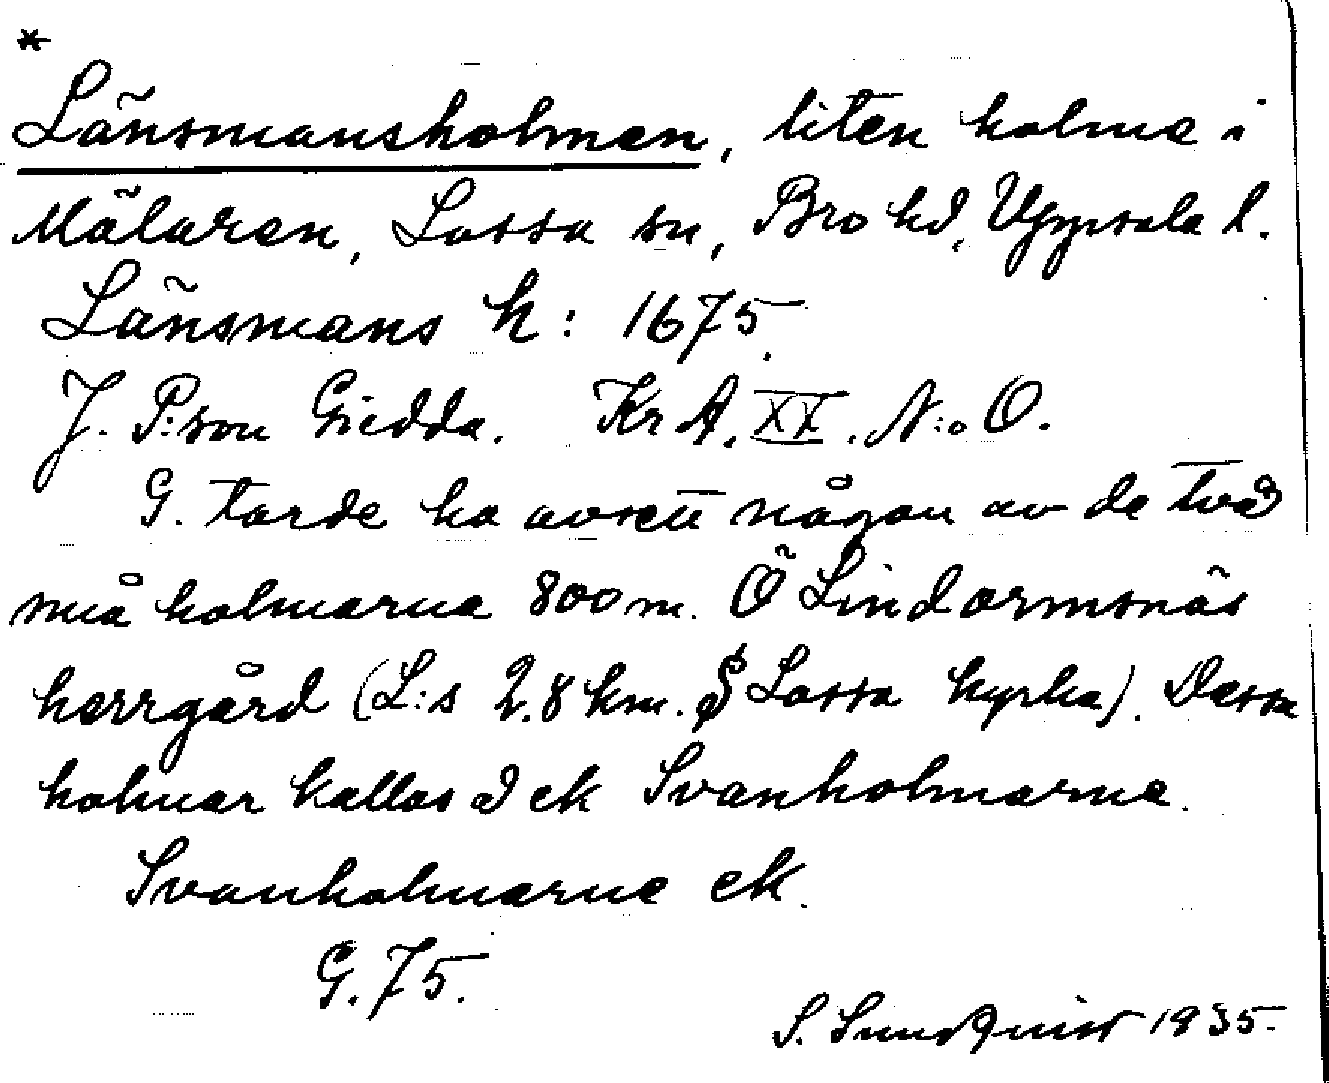 *
Länsmansholmen, liten holme i
Mälaren, Lossa sn, Bro hd, Uppsala l.
Länsmans h: 1675.
J. P:son Giedda. Kr A. XX. N:o O.
G. torde ha avsett någon av de två
små holmarna 800 m. Ö Lindormsnäs
herrgård (L:s 2.8 km. S Lossa kyrka). Dessa
holmar kallas d ek Svanholmarne.
Svanholmarne ek.
G. 75.
S. Sundquist 1935.